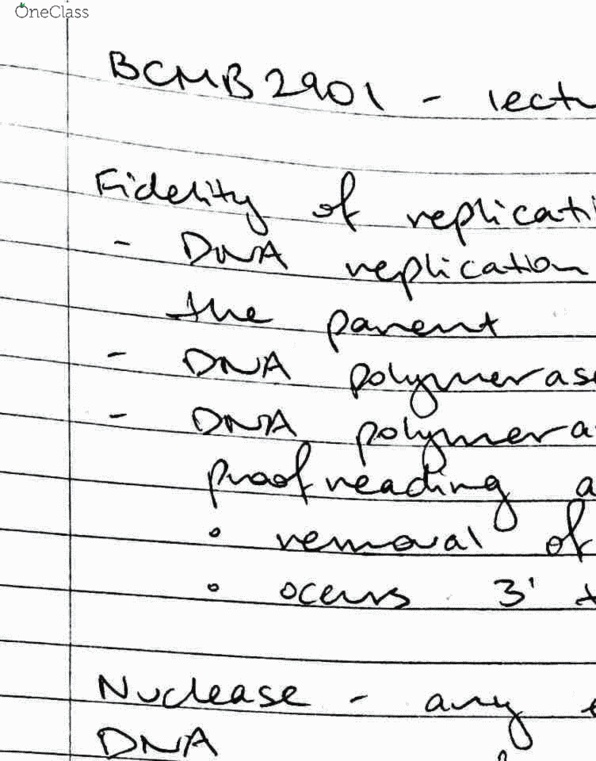 OneClass
BCMB2901 - lectu
Fidelity of replicati
- DNA replication
the parent
- DNA polymerase
- DNA polymera
proofreading a
° removal of
° ocurs 3' t
Nuclease - any e
DNA